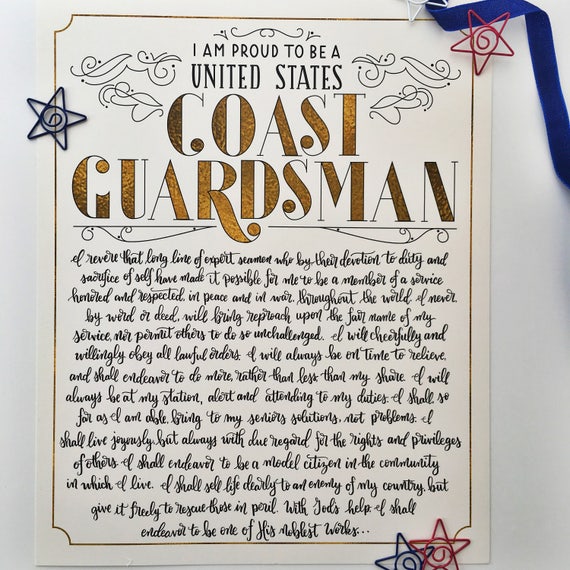 I AM PROUD TO BE A
UNITED STATES
COAST
GUARDSMAN
I revere that long line of expert seamen who by their devotion to duty and
sacrifice of self have made it possible for me to be a member of a service
honored and respected, in peace and in war, throughout the world. I never,
by word or deed, will bring reproach upon the fair name of my
service, nor permit others to do so unchallenged. I will cheerfully and
willingly obey all lawful orders. I will always be on time to relieve,
and shall endeavor to do more, rather than less than my share. I will
always be at my station, alert and attending to my duties. I shall so
far as I am able, bring to my seniors solutions, not problems. I
shall live joyously, but always with due regard for the rights and privileges
of others. I shall endeavor to be a model citizen in the community
in which I live. I shall sell life dearly to an enemy of my country, but
give it freely to rescue those in peril. With God's help, I shall
endeavor to be one of His noblest Works...